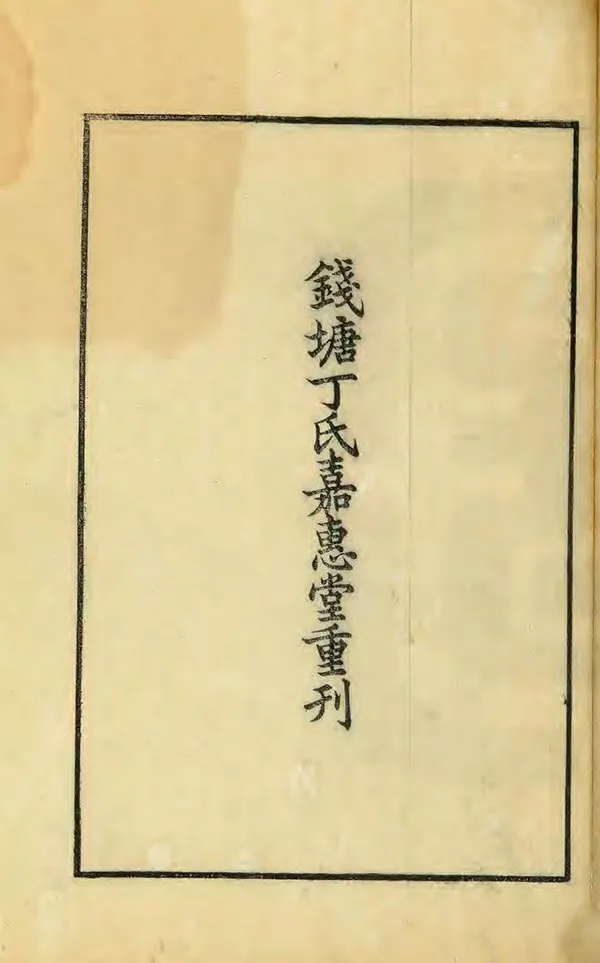 錢塘丁氏嘉惠堂重刊